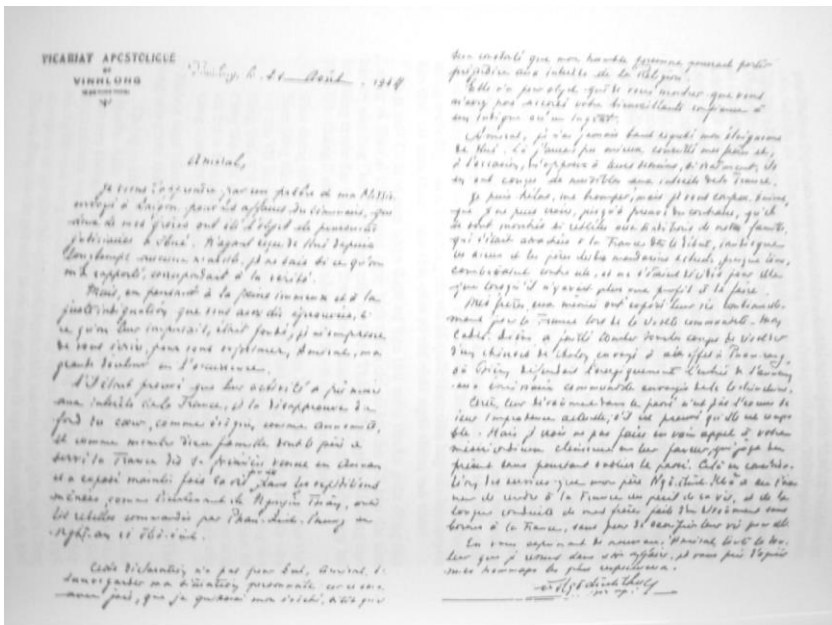 VICARIAT APOSTOLIQUE
DE
VINHLONG
Vinhlong, le 21 Août 1944
Amiral,
Je viens d'apprendre par un prêtre de ma Mission
envoyé à Saigon pour les affaires du séminaire, que
deux de mes frères ont été l'objet de poursuites
judiciaires à Hué. N'ayant reçu de Hué depuis
longtemps aucune nouvelle, je ne sais si ce qu'on
m'a rapporté, correspondait à la vérité.
Mais, en pensant à la peine immense et à la
juste indignation que vous avez dû éprouver, si
ce qu'on leur imputait, était fondé, je m'empresse
de vous écrire, pour vous exprimer, Amiral, ma
grande douleur en l'occurrence.
S'il était prouvé que leur activité a pu nuire
aux intérêts de la France, je la désapprouve du
fond du cœur, comme évêque, comme annamite,
et comme membre d'une famille dont le père a
servi la France dès sa première venue en Annam
et a exposé maintes fois sa vie dans les expéditions
menées, comme lieutenant de Nguyên Thân, contre
les rebelles commandés par Phan-dinh-Phung au
Nghê-an et
Cette déclaration n'a pas pour but, Amiral, de
sauvegarder ma situation personnelle car
que je quitterai mon évêché, dès que
sera constaté que mon humble personne pourrait porter
préjudice aux intérêts de la Religion.
Elle n'a pour objet que de vous montrer que vous
n'avez pas accordé votre bienveillante confiance à
un indigne ou un ingrat.
Amiral, je n'ai jamais tant regretté mon éloignement
de Hué. Là j'aurais pu mieux conseiller mes frères et,
à l'occasion, m'opposer à leurs desseins, si vraiment, ils
en ont conçu de nuisibles aux intérêts de la France.
Je puis hélas, me tromper, mais je vous confesse, Amiral,
que je ne puis croire, jusqu'à preuve du contraire, qu'ils
se sont montrés si rebelles aux traditions de notre famille,
qui s'était attachée à la France dès le début, tandis que
les aïeux et les pères des mandarins actuels, presque tous,
combattaient contre elle, et ne s'étaient décidés pour elle
que lorsqu'il n'y avait plus que profit à le faire.
Mes frères, eux mêmes ont exposé leur vie
pour la France lors de la révolte communiste. Mon
cadet, Diêm, a failli tomber sous les coups de revolver
d'un chinois de Cholon, envoyé à cet effet à Phanrang,
où Diêm défendait énergiquement l'entrée de l'Annam
aux communistes envoyés de la Cochinchine.
Certes, leur dévouement dans le passé n'est pas l'excuse de
leur imprudence actuelle, s'il est prouvé qu'elle est coupable.
Mais je crois ne pas faire en vain appel à votre
clémence en leur faveur, qui juge le
présent sans pourtant oublier le passé. Cela en considération
des services que mon père Ngô-dinh-Kha a eu l'honneur
de rendre à la France au péril de sa vie, et de la
longue conduite de mes frères faite d'un dévouement sans
bornes à la France, sans peur de sacrifier leur vie pour elle.
En vous exprimant de nouveau, Amiral, toute la douleur
que je ressens dans cette affaire, je vous prie d'agréer
mes hommages les plus respectueux.
Ngô dinh Thuc